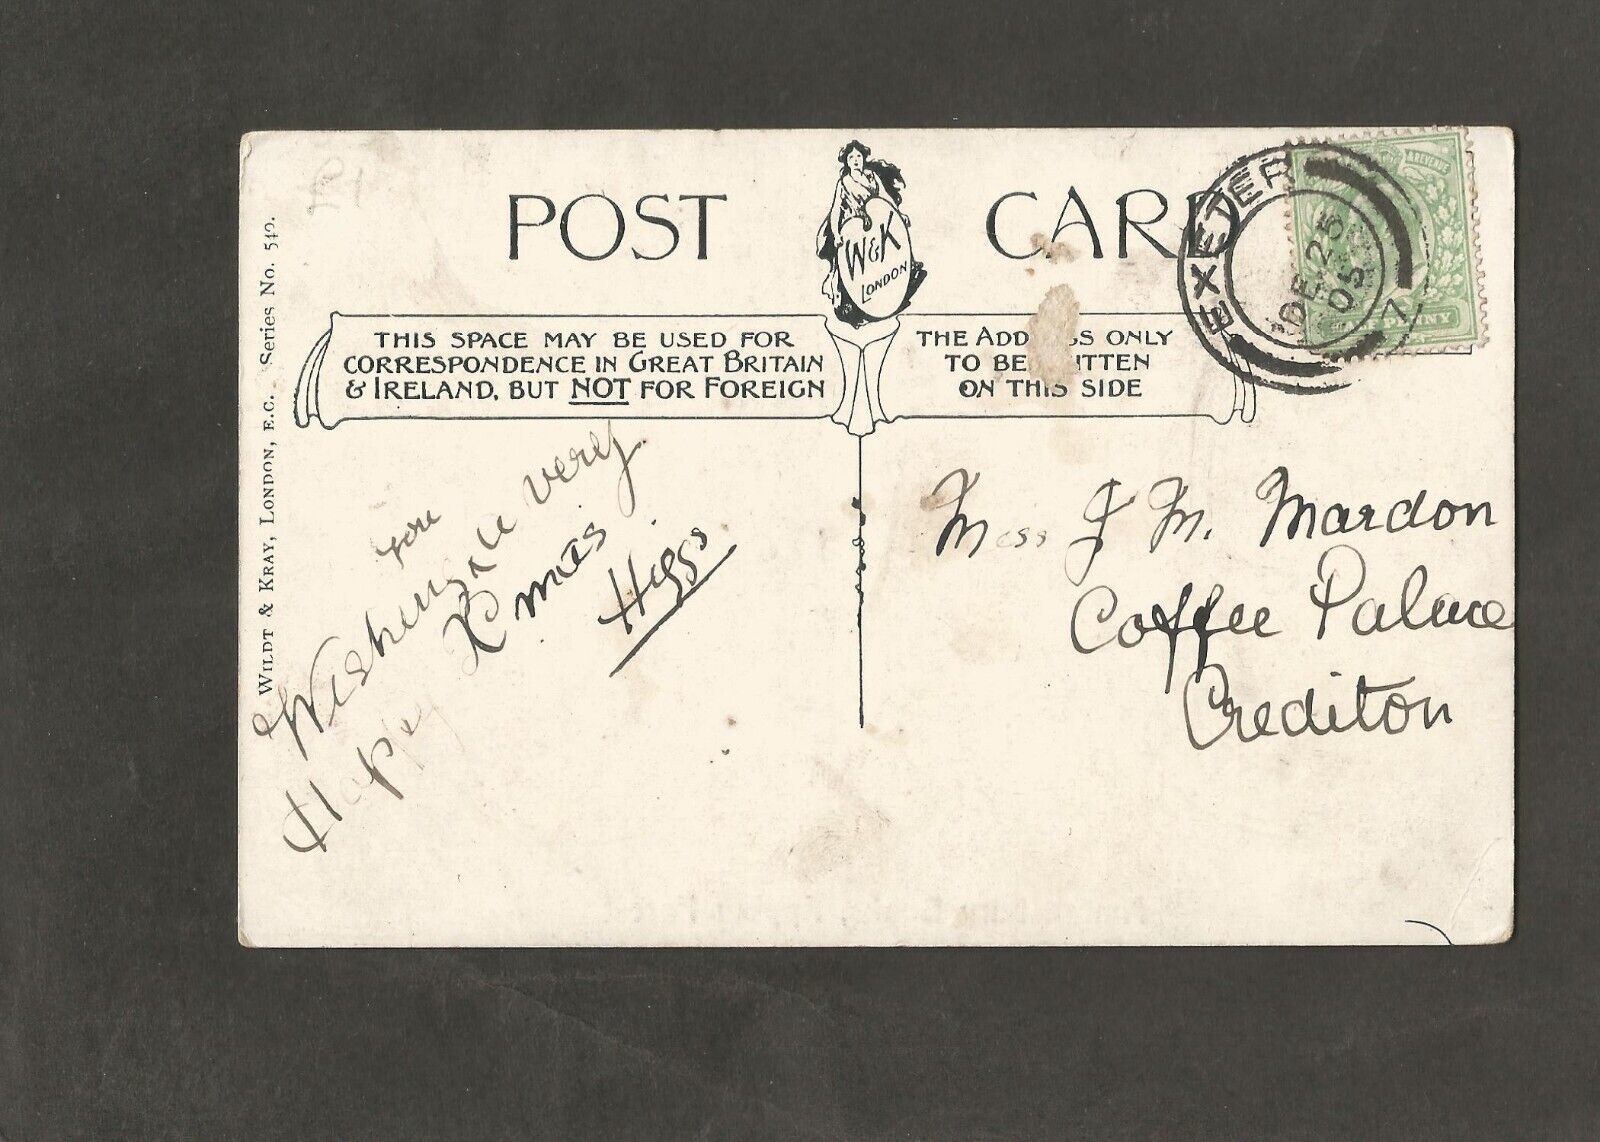 £1
POST CARD
W&K
LONDON
THIS SPACE MAY BE USED FOR
CORRESPONDENCE IN GREAT BRITAIN
& IRELAND, BUT NOT FOR FOREIGN
THE ADD SS ONLY
TO BE ITTEN
ON THIS SIDE
EXETER
DE 25
05
7
& REVENUE
PENNY
WILDT & KRAY, LONDON, E.C. Series No. 540.
you
Wishing a very
Happy Xmas
Higgs
Miss J M. Mardon
Coffee Palace
Crediton